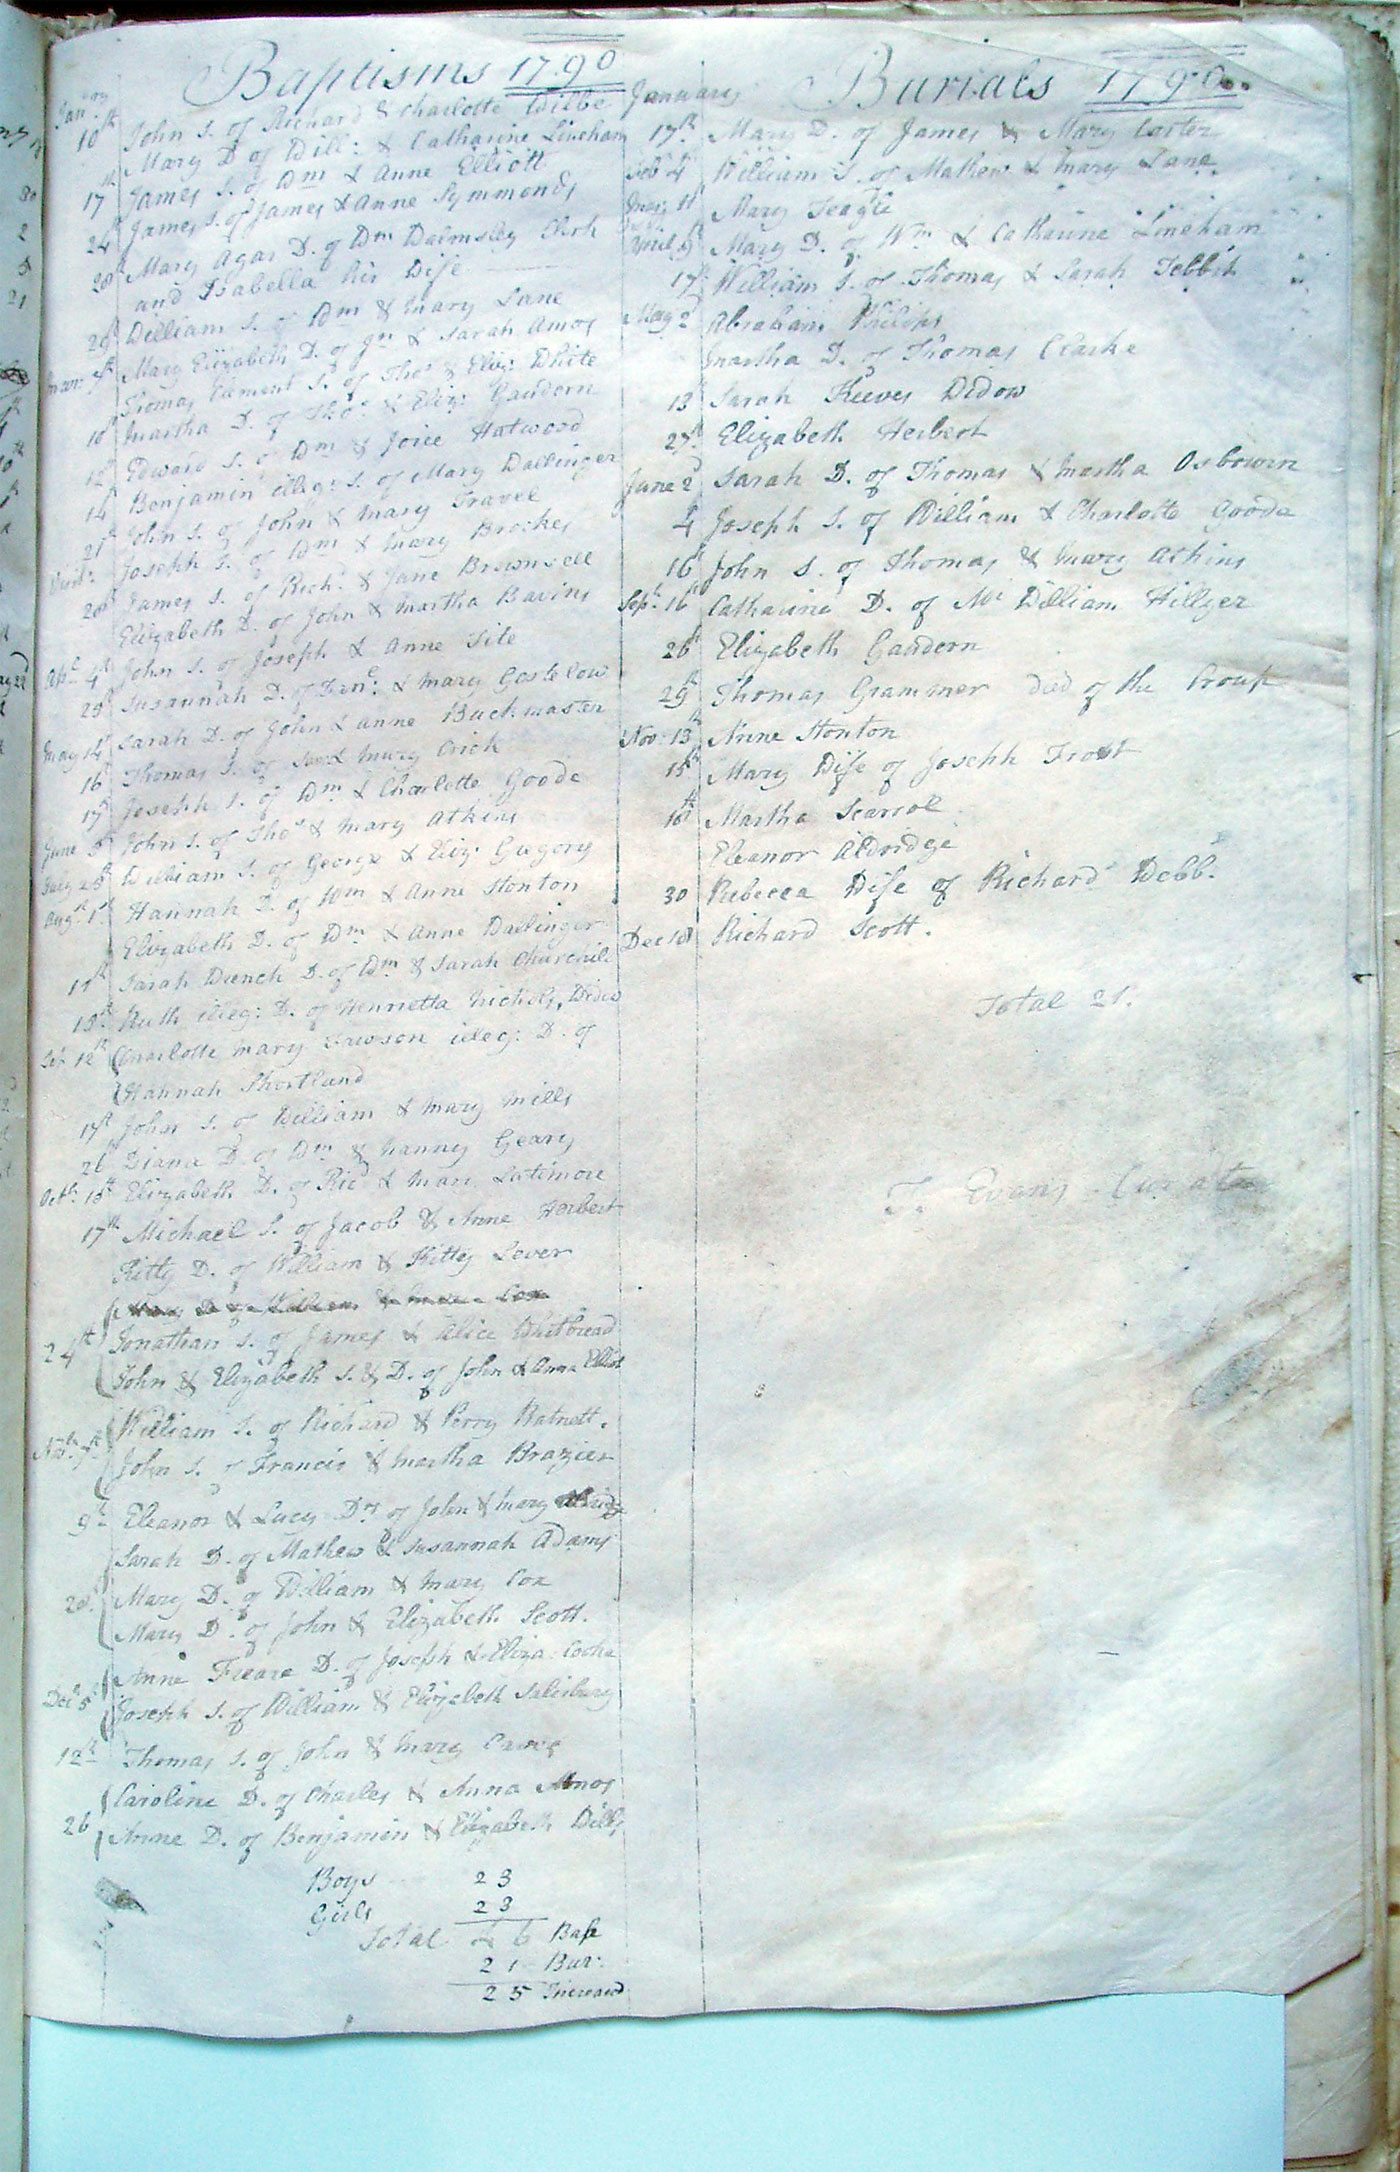 Baptisms 1790
Jan.ry 10th John S. of Richard & Charlotte Wilbe
Mary D of Will: & Catharine Lineham
17th James S. of Wm & Anne Elliott
24th James S. of James & Anne Symmonds
28th Mary Agar D. of Wm Walmsley Clerk
and Isabella his Wife
William S. of Wm & Mary Lane
Mary Elizabeth D. of Jn & Sarah Amos
Thomas Clement S. of Thos & Eliz: White
Martha D. of Thos & Eliz: Gaudern
12th Edward S. of Wm & Joice Hatwood
14 Benjamin illeg: S. of Mary Dallinger
21st John S. of John & Mary Travel
Joseph S. of Wm & Mary Brookes
28th James S. of Rich: & Jane Brownsell
Elizabeth D. of John & Martha Bavins
Apl 4th John S. of Joseph & Anne Tite
25th Susannah D. of & Mary Gostelow
May 14th Sarah D. of John & Anne Buckmaster
16 Thomas S. of & Mary Crick
17th Joseph S. of Wm & Charlotte Goode
June John S. of Thos & Mary Atkins
July 25th William S. of George & Eliz: Gregory
Augst 1st Hannah D. of Wm & Anne Stonton
Elizabeth D. of Wm & Anne Dallinger
11th Sarah Wench D. of Wm & Sarah Churchill
15th Ruth illeg: D. of Henrietta Nichols, Widow
Sep 12th Charlotte Mary Lawson illeg: D. of
Hannah Shortland
17th John S. of William & Mary Mills
26 Diana D. of Wm & Nanny Geary
Octr 10th Elizabeth D. of Ricd & Mary Latimore
17th Michael S. of Jacob & Anne Herbert
Kitty D. of William & Kitty Lever
Mary D. of William & Mary Cox
24th Jonathan S. of James & Alice Whitbread
John & Elizabeth S. & D. of John & Anna Elliot
William S. of Richard & Perry Ratnett.
Novr 7th John S. of Francis & Martha Brazier
9th Eleanor & Lucy Drs of John & Mary Aldridge
Sarah D. of Mathew & Susannah Adams
28. Mary D. of William & Mary Cox
Mary D. of John & Elizabeth Scott.
Anne Freare D. of Joseph & Eliza: Cooke
Decr 5th Joseph S. of William & Elizabeth Salisbury
12th Thomas S. of John & Mary
Caroline D. of Charles & Anna Amos
26 Anne D. of Benjamin & Elizabeth Wills
Boys 23
Girls 23
Total 46 Bap
21 Bur:
25 Increased
Burials 1790.
January
17th Mary D. of James & Mary Carter
Feb 4 William S. of Mathew & Mary Lane
Mar: 11 Mary Teagle
April 9th Mary D. of Wm & Catharine Lineham
17th William S. of Thomas & Sarah Tebbit
May 2d Abraham Philips
Martha D. of Thomas Clarke
13th Sarah Reeves Widow
27th Elizabeth Herbert
June 2d Sarah D. of Thomas & Martha Osbourn
4 Joseph S. of William & Charlotte Goode
16th John S. of Thomas & Mary Atkins
Sepr 16th Catharine D. of Mr William Hillyer
26th Elizabeth Gaudern
29th Thomas Grammer Died of the Croup
Nov: 13th Anne Stonton
15th Mary Wife of Joseph Frost
18th Martha Scarrol
Eleanor Aldridge
30 Rebecca Wife of Richard Webb.
Dec 18 Richard Scott.
Total 21.
T. Evans Curate